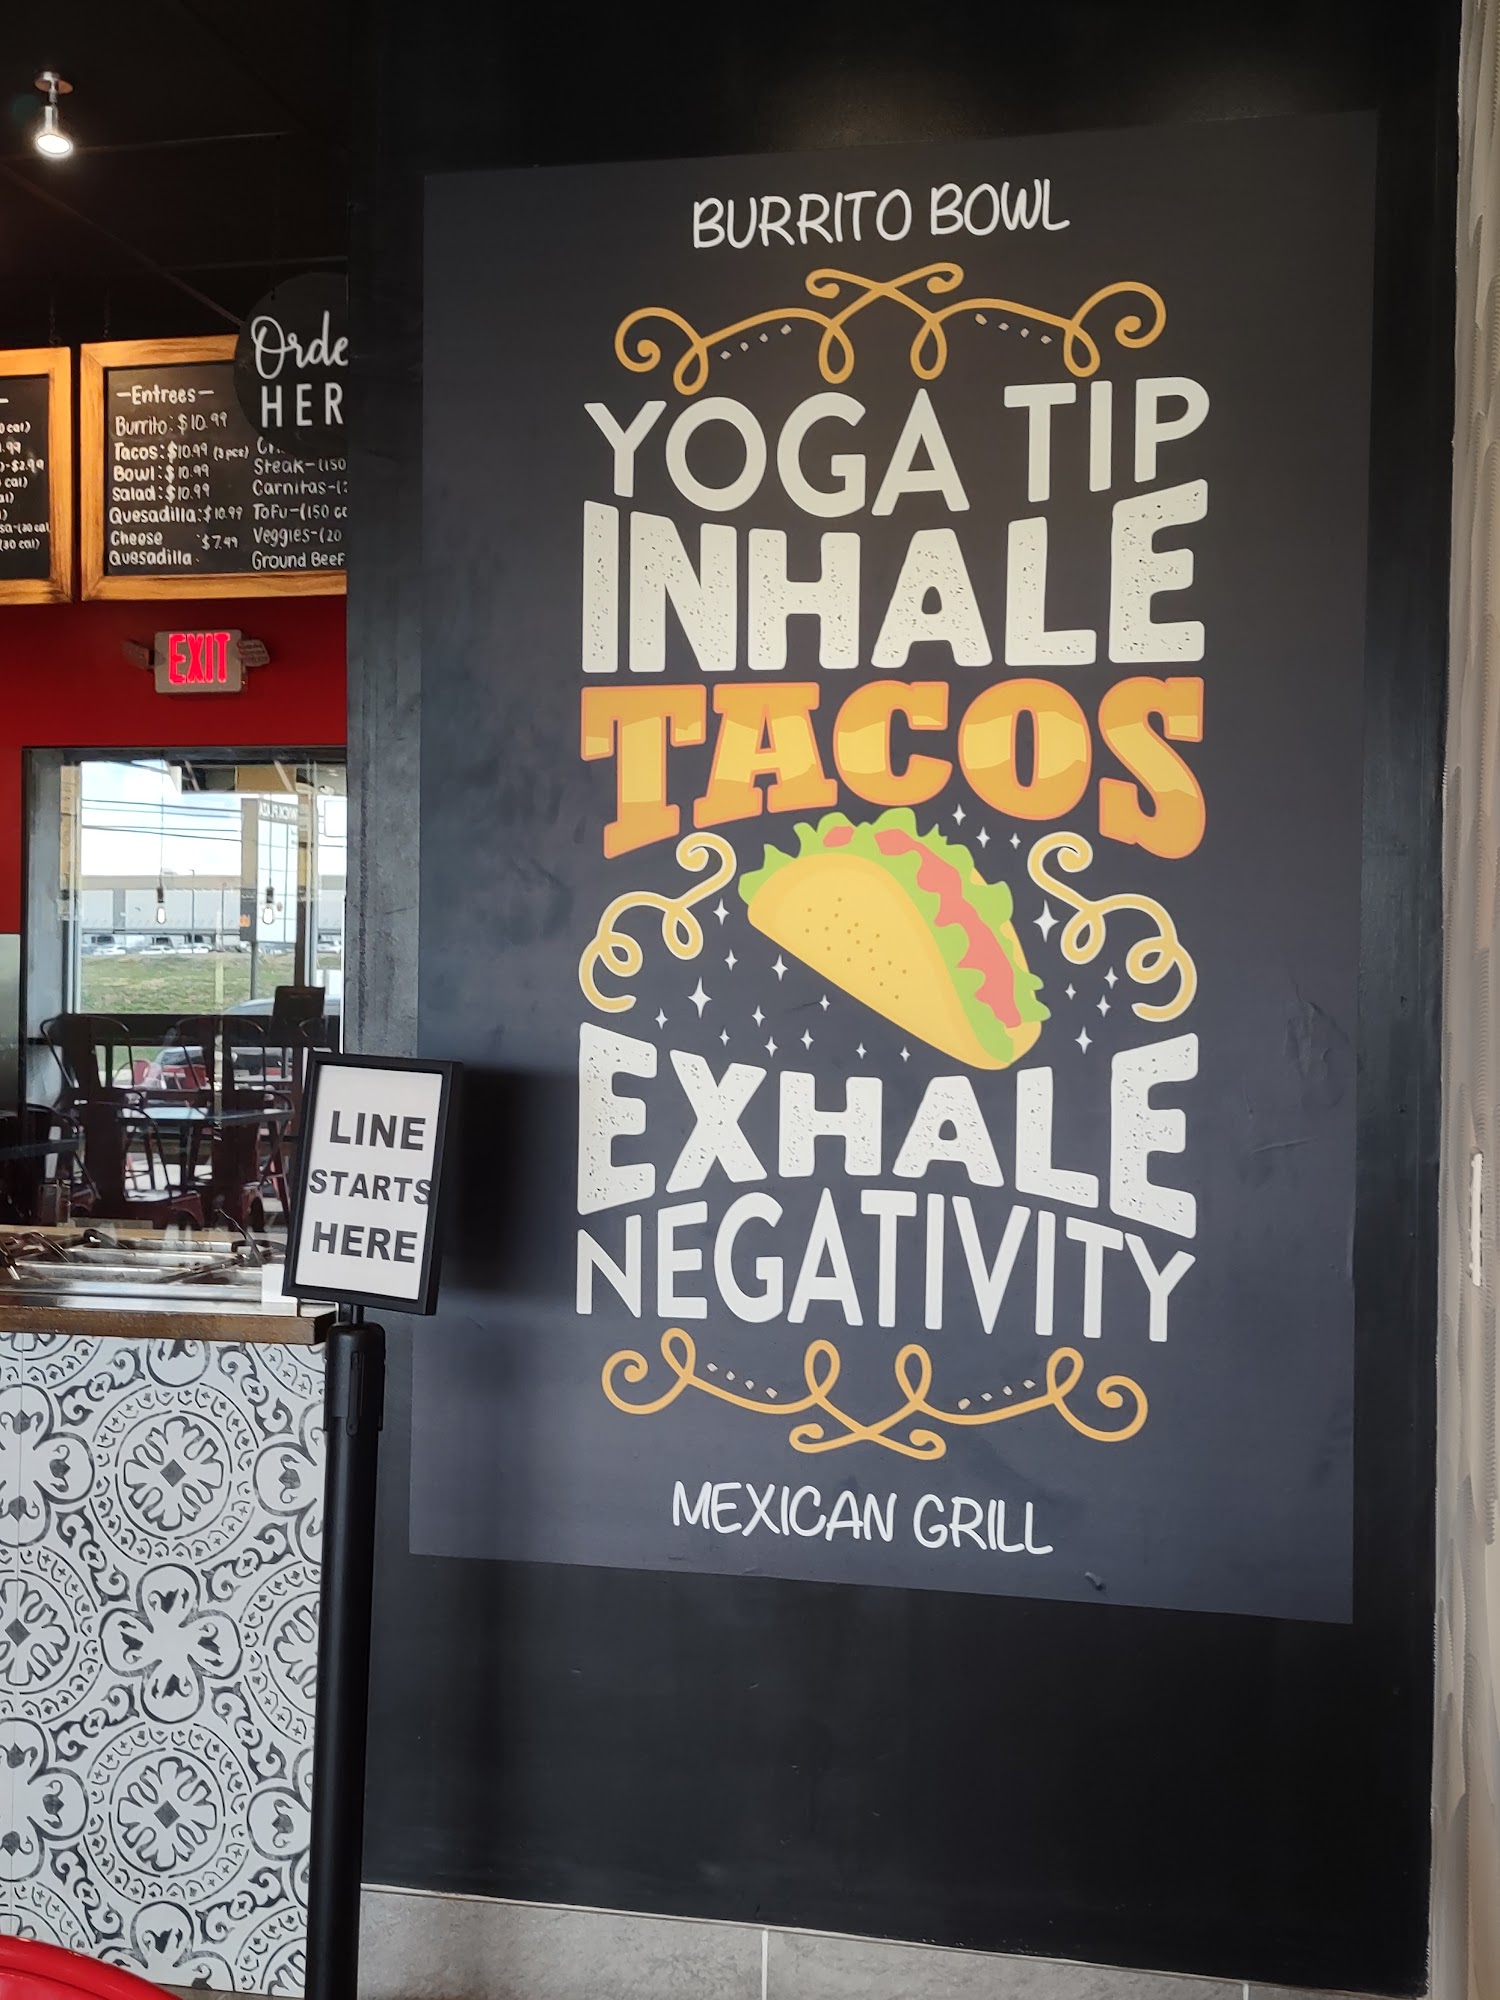 BURRITO BOWL
YOGA TIP
INHALE
TACOS
EXHALE
NEGATIVITY
MEXICAN GRILL
LINE
STARTS
HERE
EXIT
Orde
HER
—Entrees—
Burrito: $10.99
Tacos: $10.99 (3 pcs)
Bowl: $10.99
Salad: $10.99
Quesadilla: $10.99
Cheese $7.49
Quesadilla
Steak-(150
Carnitas-(
ToFu-(150 c
Veggies-(20
Ground Beef
0 cal)
-$2.99
cal)
(30 cal)